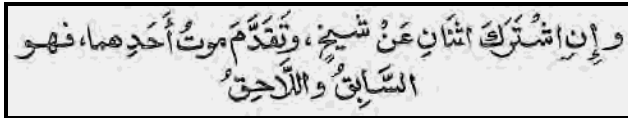 و إِنِ اشْتَرَكَ اثْنَانِ عَنْ شَيْخٍ، وتَقَدَّمَ موتُ أَحَدِهما، فهو
السَّابِقُ واللَّاحِقُ